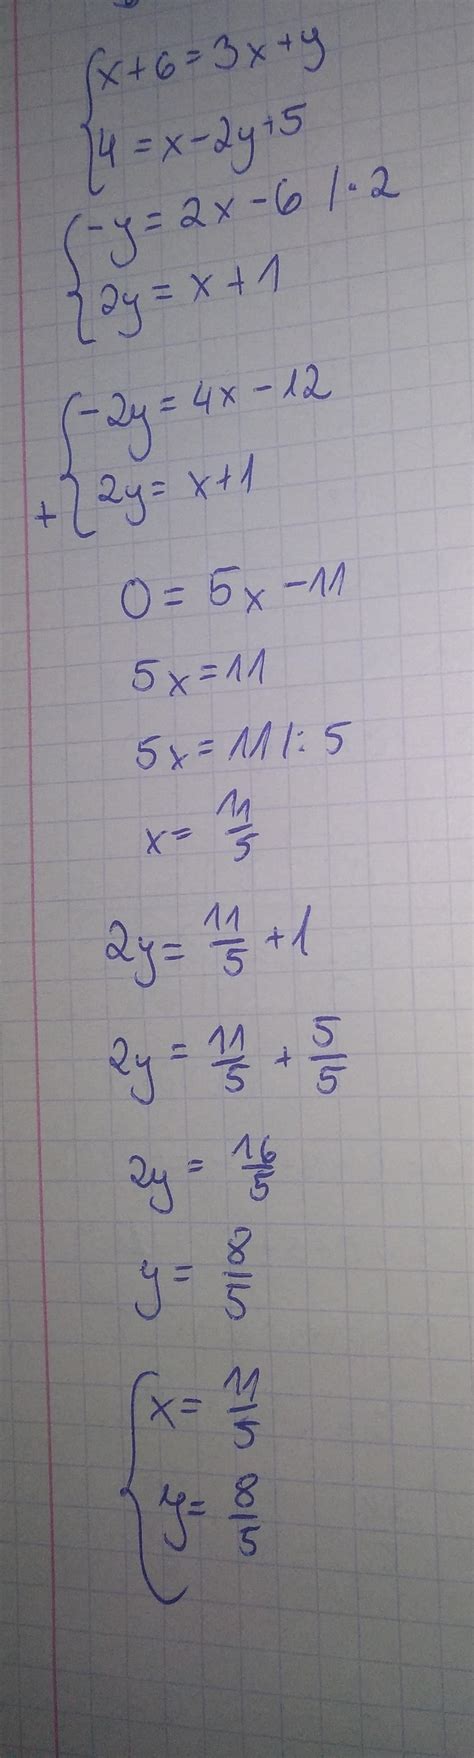 x+6=3x+y
4=x-2y+5
-y=2x-6 /·2
2y=x+1
-2y=4x-12
+ 2y=x+1
0=5x-11
5x=11
5x=11 /:5
x=11/5
2y=11/5+1
2y=11/5+5/5
2y=16/5
y=8/5
x=11/5
y=8/5